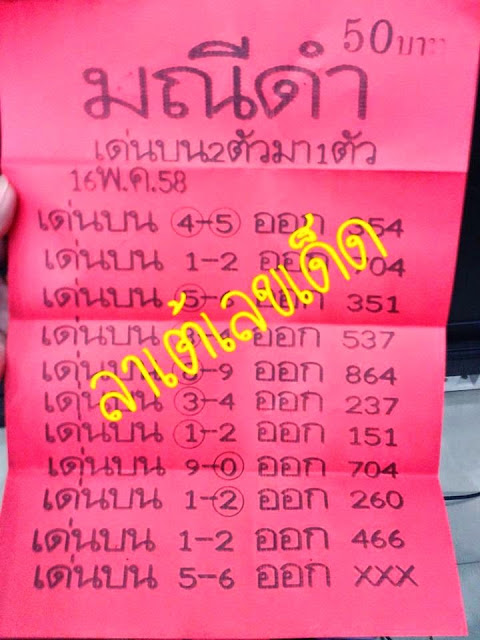 50บาท
มณีดำ
เด่นบน2ตัวมา1ตัว
16พ.ค.58
เด่นบน 4-5 ออก 354
เด่นบน 1-2 ออก 704
เด่นบน 5-6 ออก 351
เด่นบน ออก 537
เด่นบน -9 ออก 864
เด่นบน 3-4 ออก 237
เด่นบน 1-2 ออก 151
เด่นบน 9-0 ออก 704
เด่นบน 1-2 ออก 260
เด่นบน 1-2 ออก 466
เด่นบน 5-6 ออก XXX
ลาเต้เลขเด็ด